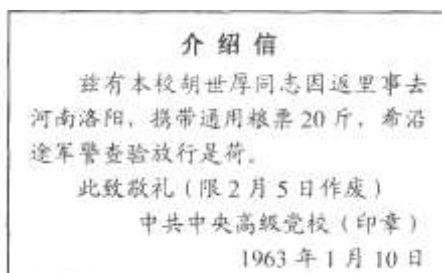 介绍信
兹有本校胡世厚同志因返里事去
河南洛阳，携带通用粮票20斤，希沿
途军警查验放行是荷。
此致敬礼（限2月5日作废）
中共中央高级党校（印章）
1963年1月10日